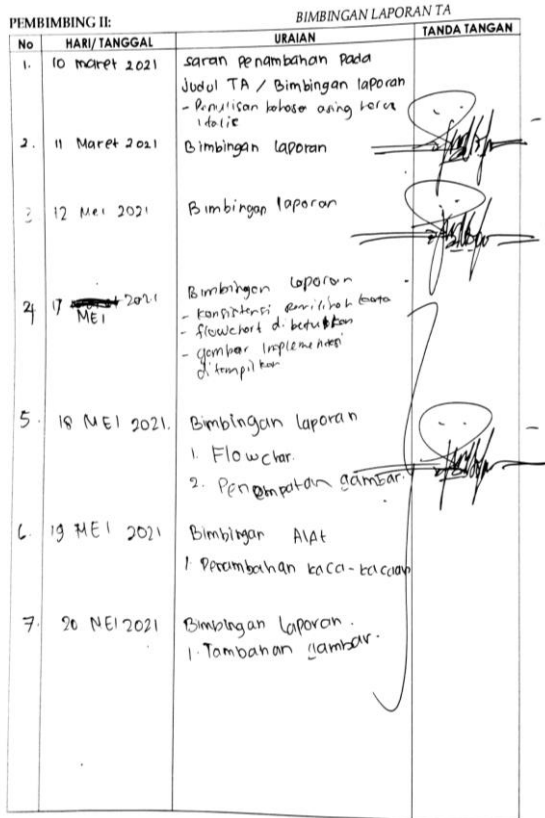 BIMBINGAN LAPORAN TA
PEMBIMBING II:
No HARI/TANGGAL URAIAN TANDA TANGAN
1. 10 maret 2021 saran penambahan pada
Judul TA / Bimbingan laporan
- Penulisan bahasa asing harus
italic
2. 11 Maret 2021 Bimbingan laporan
3 12 Mei 2021 Bimbingan laporan
4 17 MEI 2021 Bimbingan laporan
- konsistensi pemilihan kata
- flowchart dibetulkan
- gambar implementasi
ditampilkan
5. 18 MEI 2021. Bimbingan laporan
1. Flowchar.
2. Penempatan gambar.
6. 19 MEI 2021 Bimbingan Alat
1. Penambahan kaca-kacaan
7. 20 MEI 2021 Bimbingan laporan.
1. Tambahan gambar.